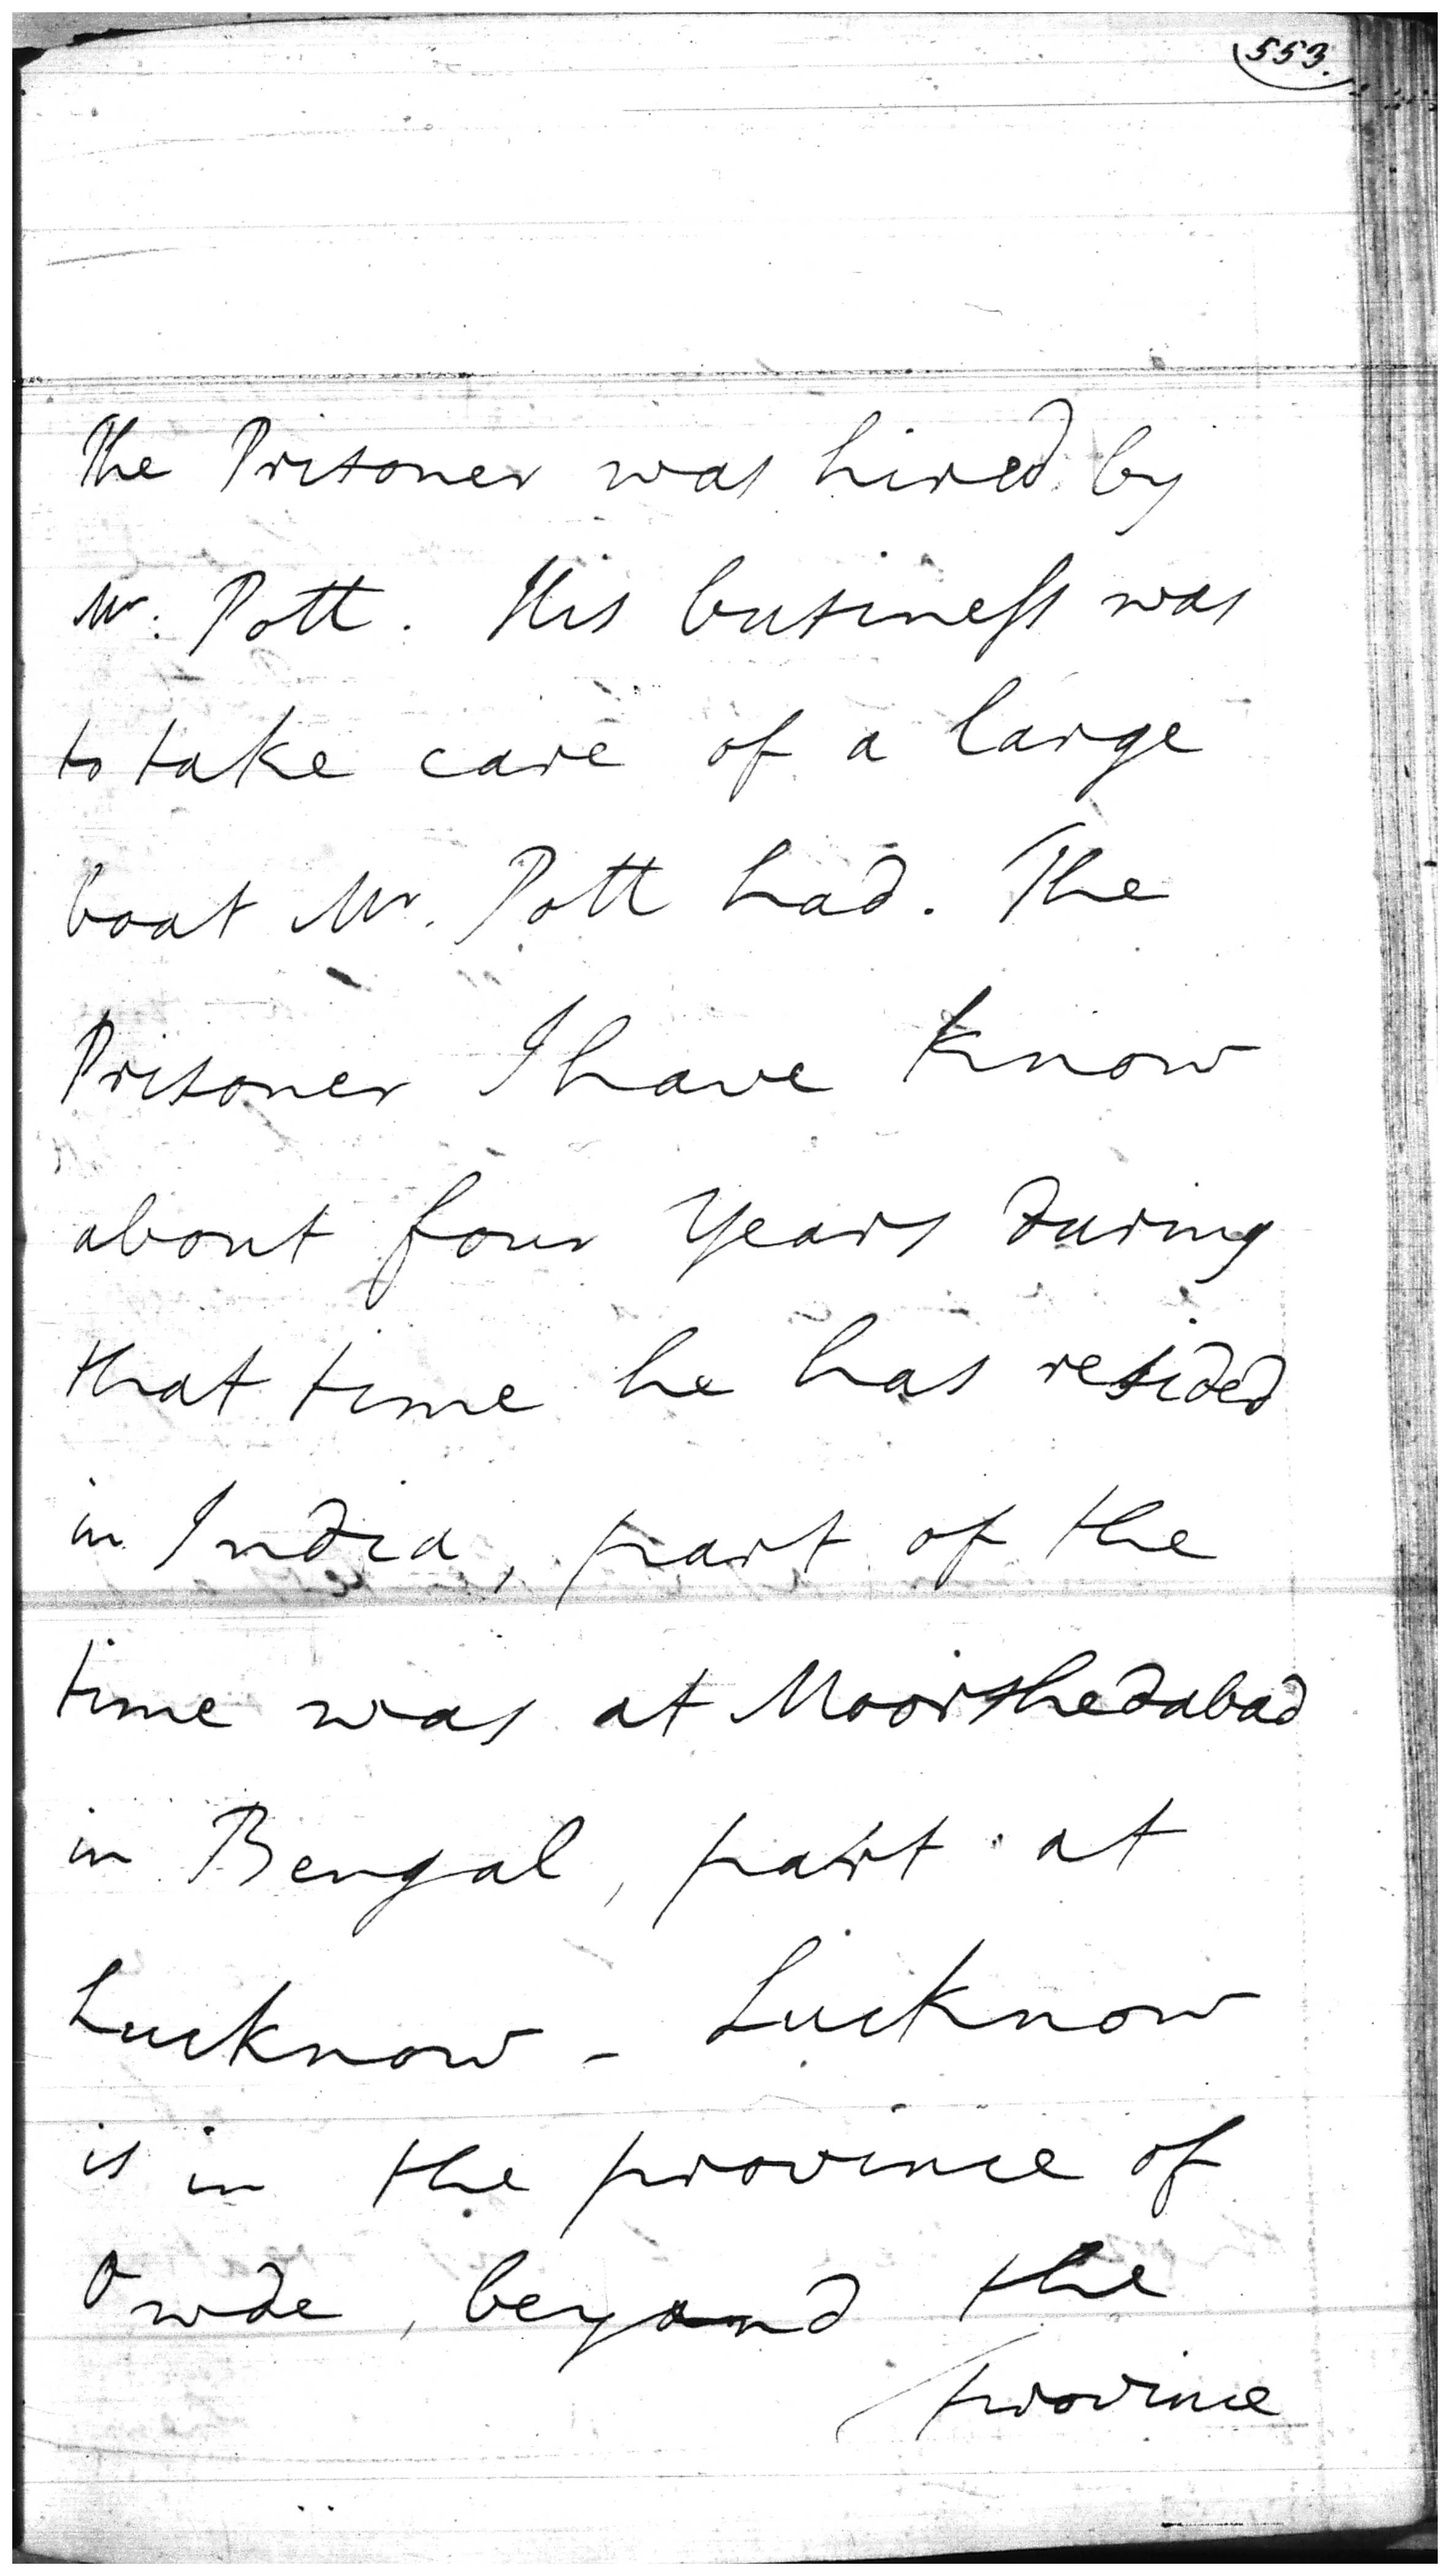 553.
The Prisoner was hired by
Mr. Pott. His business was
to take care of a large
boat Mr. Pott had. The
Prisoner I have know
about four years during
that time he has resided
in India, part of the
time was at Moorshedabad
in Bengal, part at
Lucknow - Lucknow
is in the province of
Owde, beyond the
province